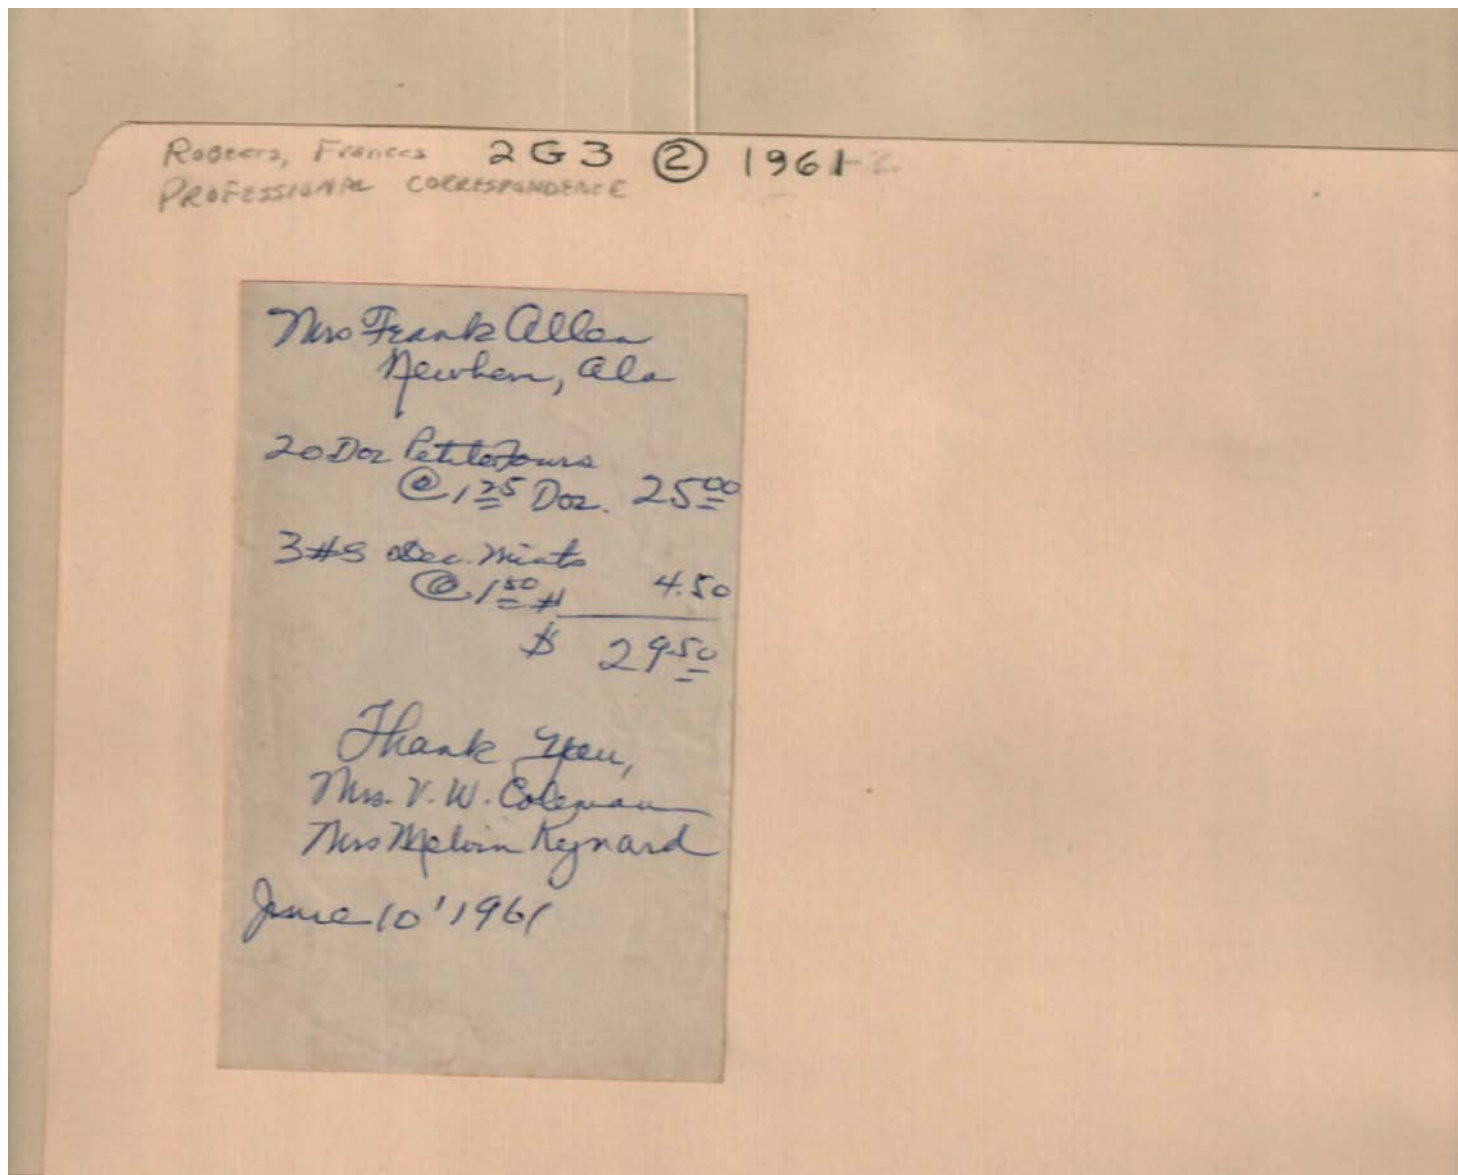 Roberts, Frances 2G3 ② 1961-2
PROFESSIONAL CORRESPONDENCE
Mrs Frank Allen
Newbern, Ala
20 Doz Petite Fours
@ 1.25 Doz. 25.00
3#s Dec. Mints
@ 1.50 # 4.50
$ 29.50
Thank You,
Mrs. V. W. Coleman
Mrs Melvin Kynard
June 10' 1961